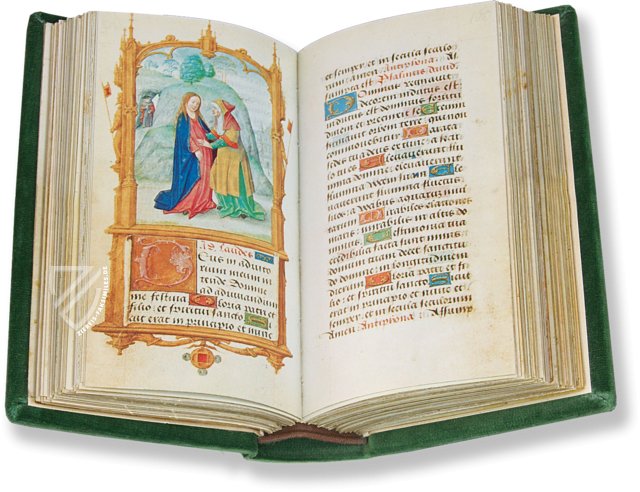 Ad laudes
Deus in adiuto
rium meum inten
tende Domine
ad adiuvandum
me festina loria patri et
filio et spiritui sancto
cut erat in principio et nunc
et semper et in secula seculo
rum Amen Antiphona As
sumpta est Psalmus david
Dominus regnavit
decorem indutus est
indutus est dominus fortitu
dinem et precinxit se
firmavit orbem terre que non
commovebitur arata
sedes tua deus ex tunc a secu
lo tu es levaverunt flu
mina domine elevaverunt
flumina vocem suam
levaverunt flumina fluctus
suos a vocibus aquarum mul
tarum irabiles elationes
maris mirabilis in altis do
minus
credibilia facta sunt nimis
domum tuam decet sanctitu
do domine in longitudinem
dierum loria patri et filio
et spiritui sancto icut
erat in principio et nunc et
semper et in secula seculorum
Amen Antiphona Assump